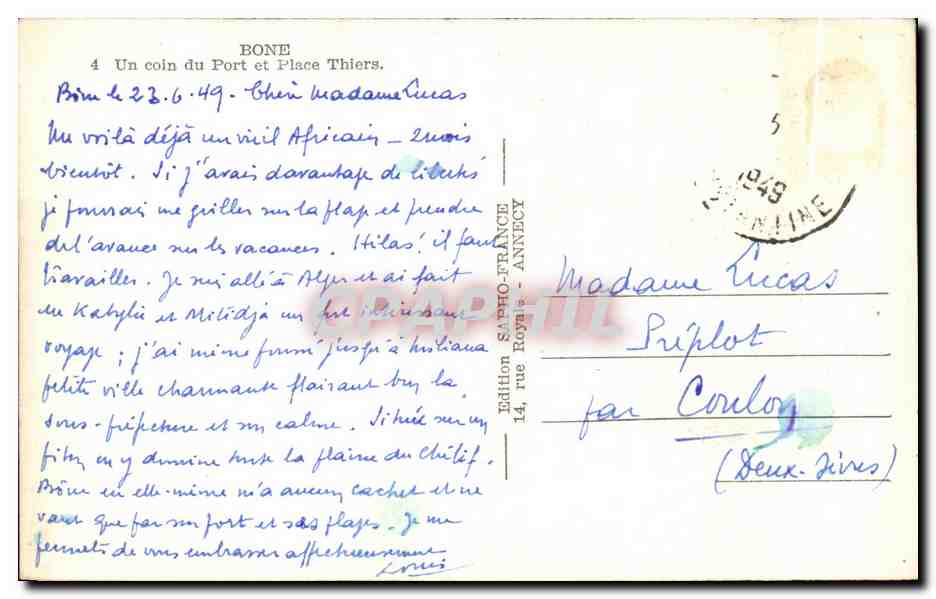 BONE
4 Un coin du Port et Place Thiers.
Bône le 23.6.49. Chère Madame Lucas
Me voilà déjà un vieil Africain - 2 mois
bientôt. Si j'avais davantage de libertés
je pourrais me griller sur la plage et prendre
de l'avance sur les vacances. Hélas! il faut
travailler. Je suis allé à Alger et ai fait
en Kabylie et Mitidja un fort intéressant
voyage ; j'ai même poussé jusqu'à Miliana
petite ville charmante flairant bon la
sous-préfecture et son calme. Située sur un
piton on y domine toute la plaine du Chélif.
Bône en elle-même n'a aucun cachet et ne
vaut que par son port et ses plages. Je me
permets de vous embrasser affectueusement
Louis
Edition SAPHO-FRANCE
14, rue Royale - ANNECY
5
1949
CPAPHIL
Madame Lucas
Préplot
par Coulon
(Deux-Sèvres)